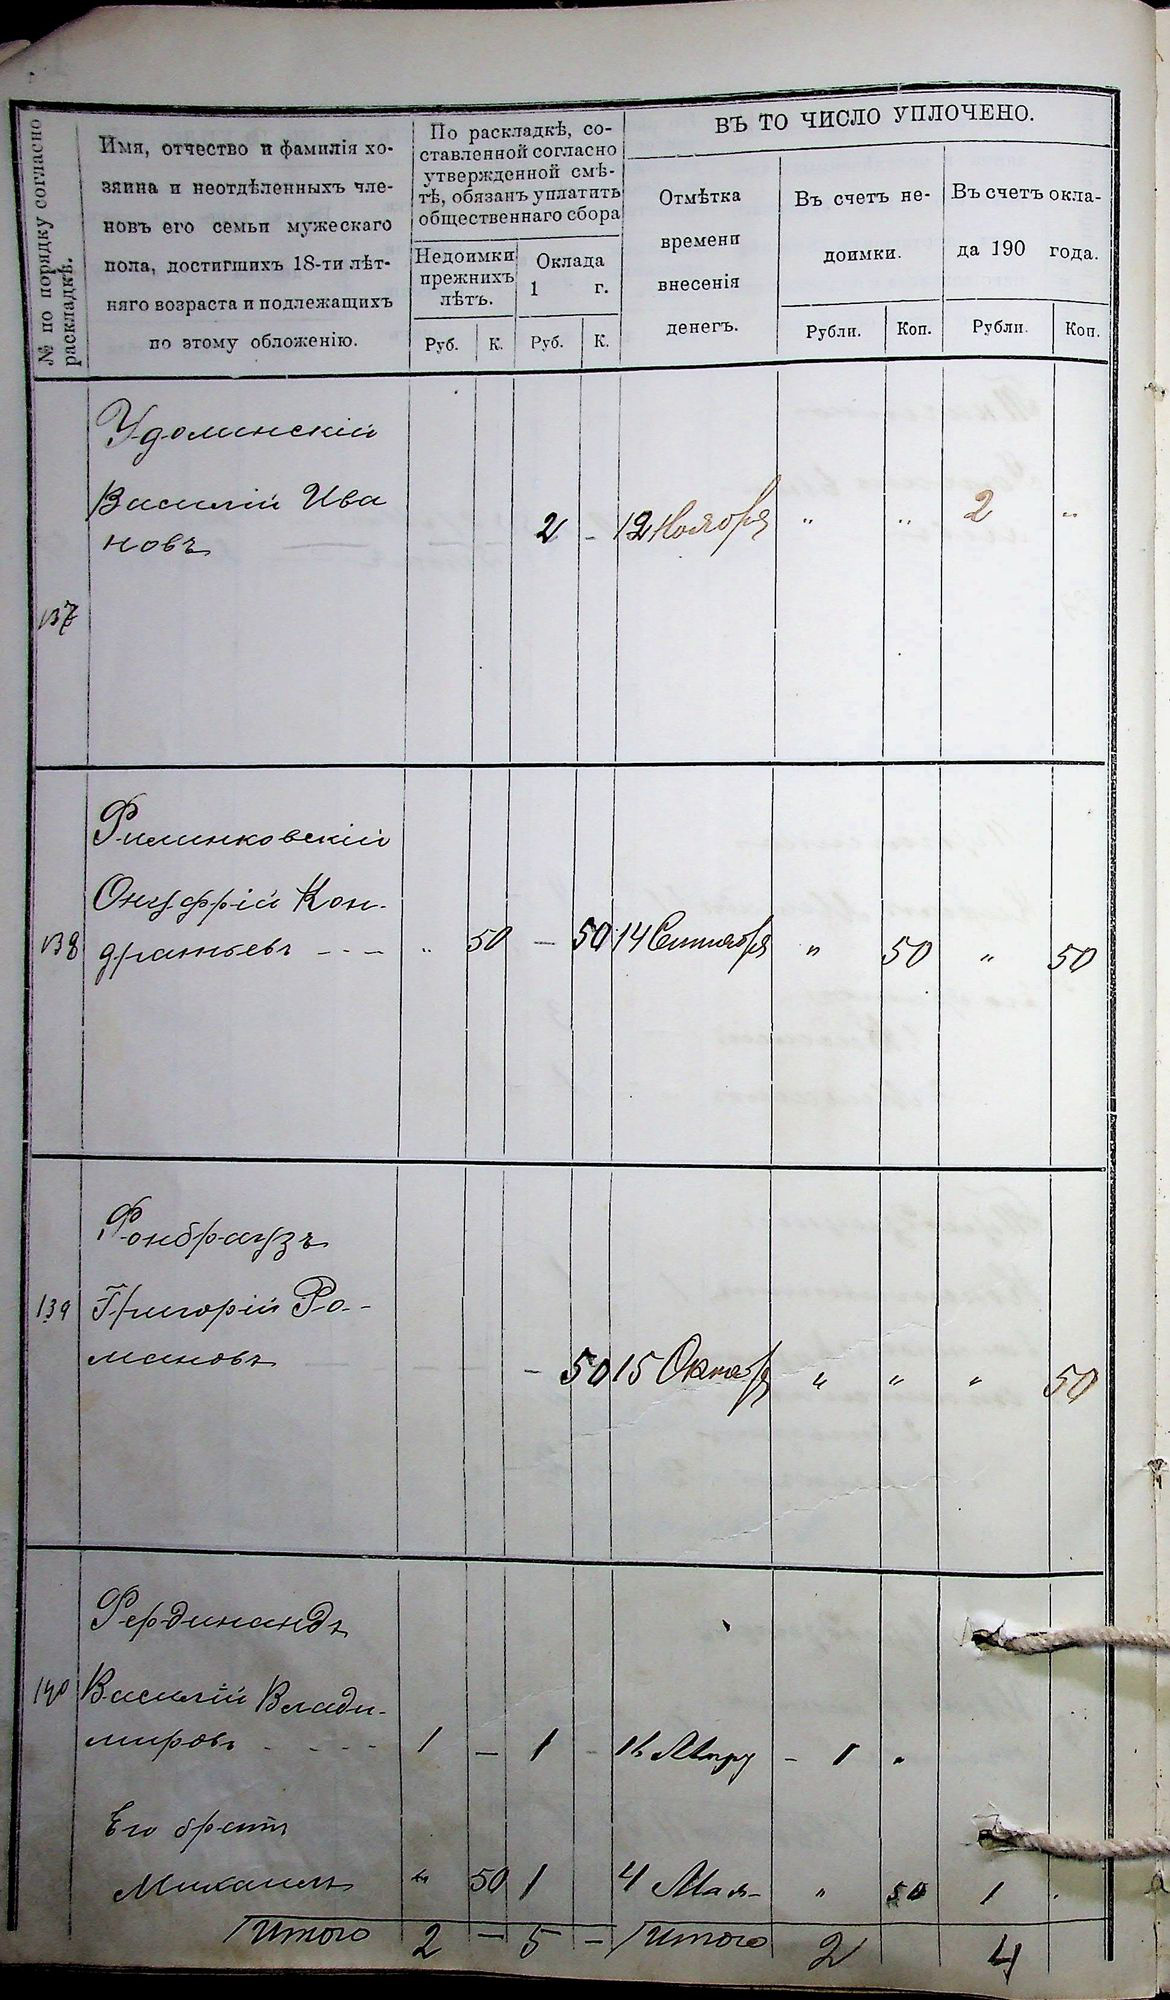 № по порядку согласно
раскладкѣ.
Имя, отчество и фамилія хо-
зяина и неотдѣленныхъ чле-
новъ его семьи мужескаго
пола, достигшихъ 18-ти лѣт-
няго возраста и подлежащихъ
по этому обложенію.
По раскладкѣ, со-
ставленной согласно
утвержденной смѣ-
тѣ, обязанъ уплатить
общественнаго сбора
Недоимки
прежнихъ
лѣтъ.
Оклада
1 г.
Руб. К. Руб. К.
ВЪ ТО ЧИСЛО УПЛОЧЕНО.
Отмѣтка
времени
внесенія
денегъ.
Въ счетъ не-
доимки.
Въ счетъ окла-
да 190 года.
Рубли. Коп. Рубли. Коп.
Удолинскій
Василій Ива
новъ 2 - 12 Ноября " " 2 "
137
Филинковскій
Онуфрій Кон-
138 дратьевъ - - - " 50 — 50 14 Сентября " 50 " 50
Фонбраузъ
139 Григорій Ро-
мановъ - 50 15 Октяб " " " 50
Фердинандъ
140 Василій Влади-
мировъ - - - - 1 — 1 - - 1 "
Его братъ
Михаилъ " 50 1 4 Мая - " 50 1 .
Итого 2 — 5 — Итого 2 4